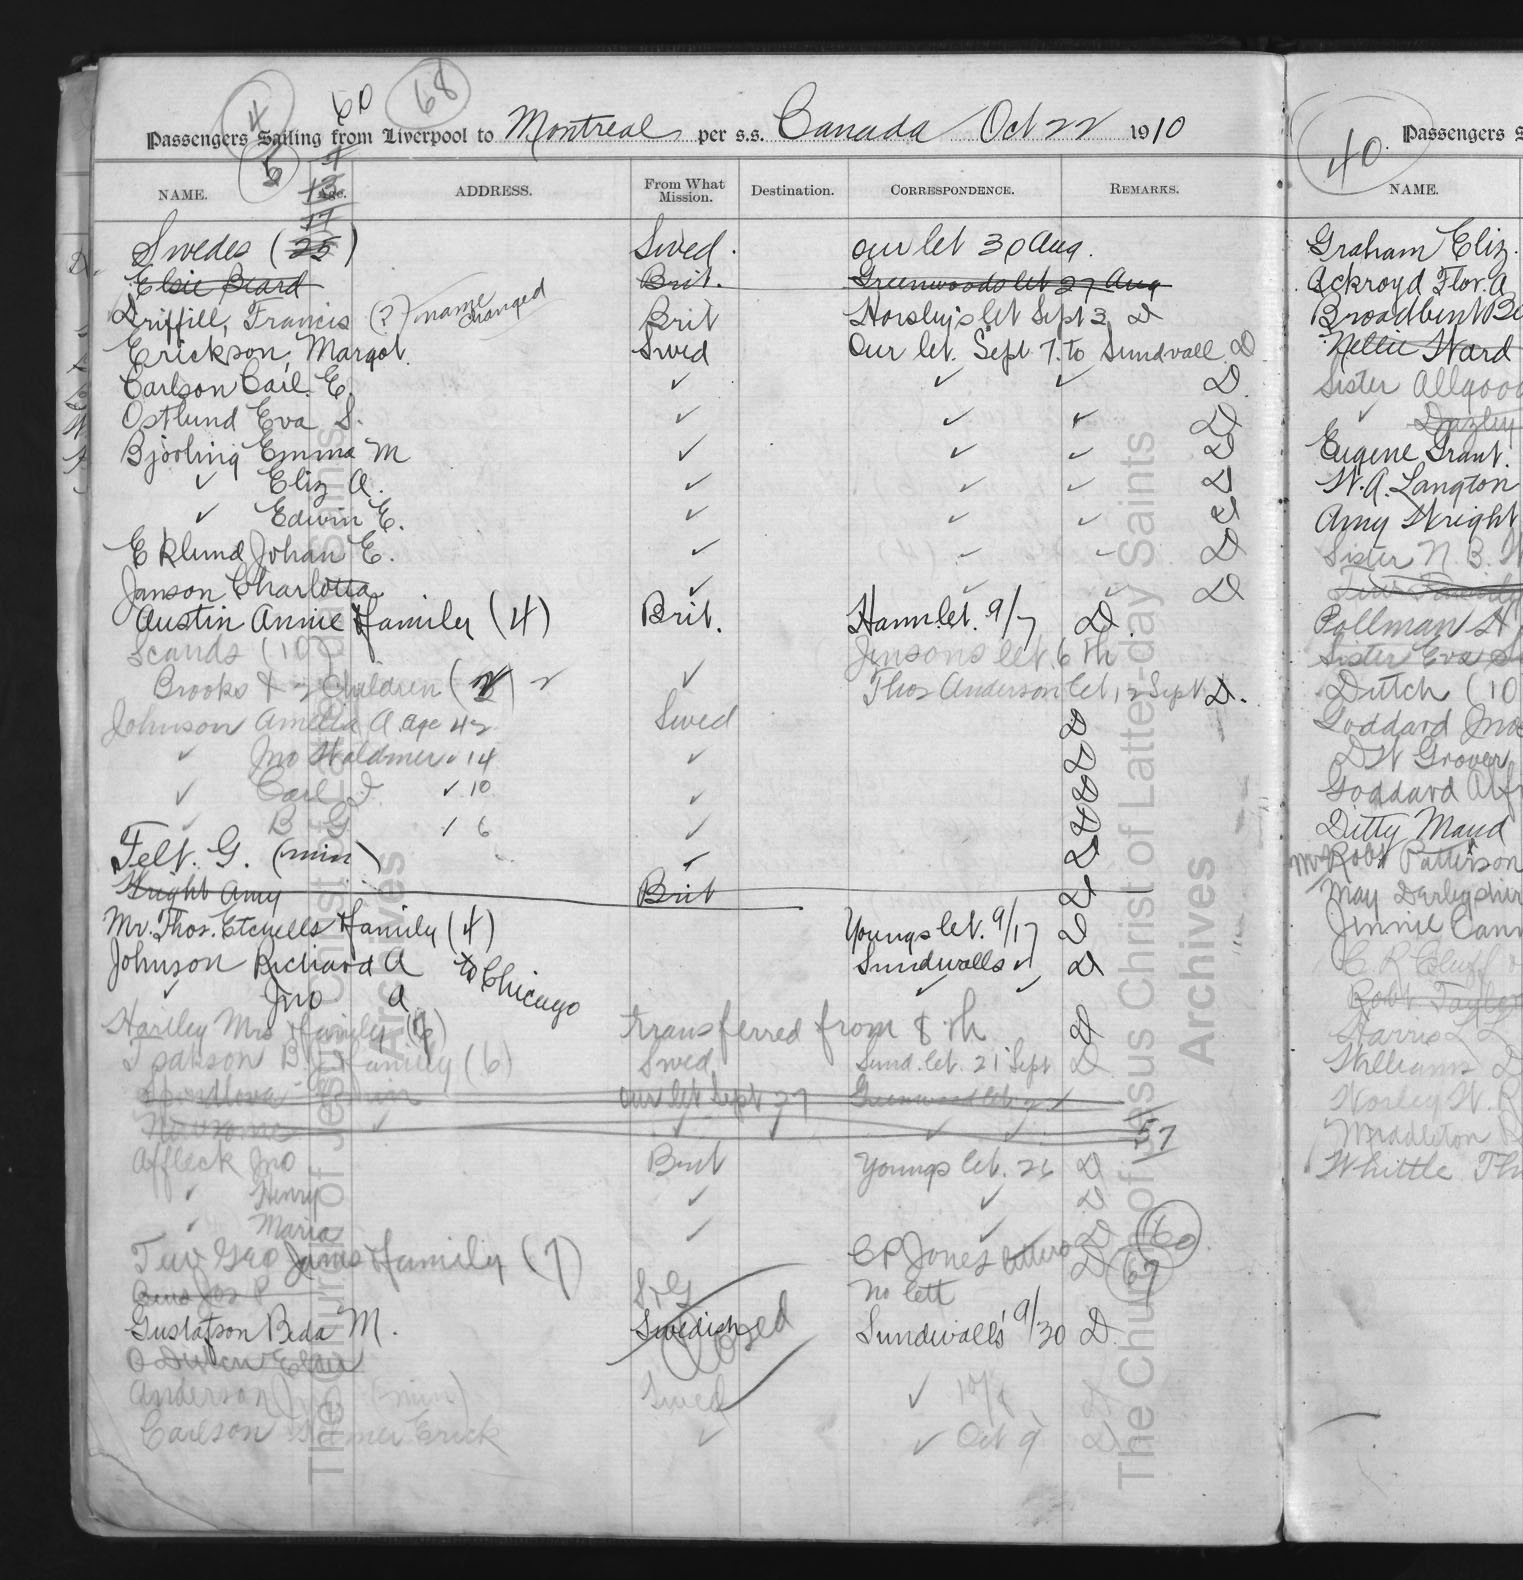 4 60 68
Passengers Sailing from Liverpool to Montreal per s.s. Canada Oct 22 1910
5
NAME. Age. ADDRESS. From What Mission. Destination. CORRESPONDENCE. REMARKS.
7
13
17
Swedes (25) Swed. our let 30 Aug.
Elsie Beard Brit. Greenwoods let 27 Aug
Driffill, Francis (?) name changed Brit Horsley's let Sept 3 D
Erickson, Margot. Swed Our let. Sept 7. to Sundvall D
Carlson Carl. E. ✓ ✓ ✓ D
Ostlund Eva S. ✓ ✓ ✓ D
Bjorling Emma M ✓ ✓ ✓ D
✓ Eliz A. ✓ ✓ ✓ D
✓ Edwin E. ✓ ✓ ✓ D
Eklund Johan E. ✓ ✓ ✓ D
Janson Charlotta ✓ ✓ ✓ D
Austin Annie & family (4) Brit. Ham let. 9/7 D
Scands (10) Jensons let. 6th
Brooks & 2 Children (2) ✓ ✓ Thos Anderson let, 12 Sept D.
Johnson Amelia A. age 42 Swed D
✓ Jno Waldmer ✓ 14 ✓ D
✓ Carl D. ✓ 10 ✓ D
✓ B G ✓ 6 ✓ D
Felt. G. (min) ✓ D
Wright Amy Brit
Mr. Thos. Etchells & family (4) Youngs let. 9/17 D
Johnson Richard A to Chicago Sundwalls ✓ D
✓ Jno A ✓ ✓
Hartley Mrs & family transferred from 8th D
Isakson B. & family (6) Swed. Sund. let. 21 Sept D
our let Sept 27 Greenwood let
✓ ✓ ✓ ✓ ✓ 57
Affleck Jno Brit Youngs let. 26 D
✓ Henry ✓ ✓ D
✓ Maria ✓ ✓ D
60
Tew Geo James & family (7) C P Jones D
67
S, G No lett
Gustafson Beda M. Swedish Sundwalls' 9/30 D
Closed
Anderson (min) Swed ✓ 10/8 D
Carlson Erick ✓ ✓ Oct 9 D
The Church of Jesus Christ of Latter-day Saints
Archives
The Church of Jesus Christ of Latter-day Saints
Archives
40. Passengers S
NAME.
Graham Eliz.
Ackroyd Flor. A
Broadbent Be
Nellie Ward
Sister Allgood
✓ Dazley
Eugene Grant.
W. A. Langton
Amy Wright
Sister N. B. W
Tew Family
Pollman H.
Sister Eva
Dutch (10
Goddard Jno
D W Grover
Goddard Alf
Ditty Maud
Mrs Robt Patterson
May Derbyshir
Jennie Cann
C R Cluff
Robt Taylor
Harris L L
Williams D
Worley W. R
Middleton
Whittle Th